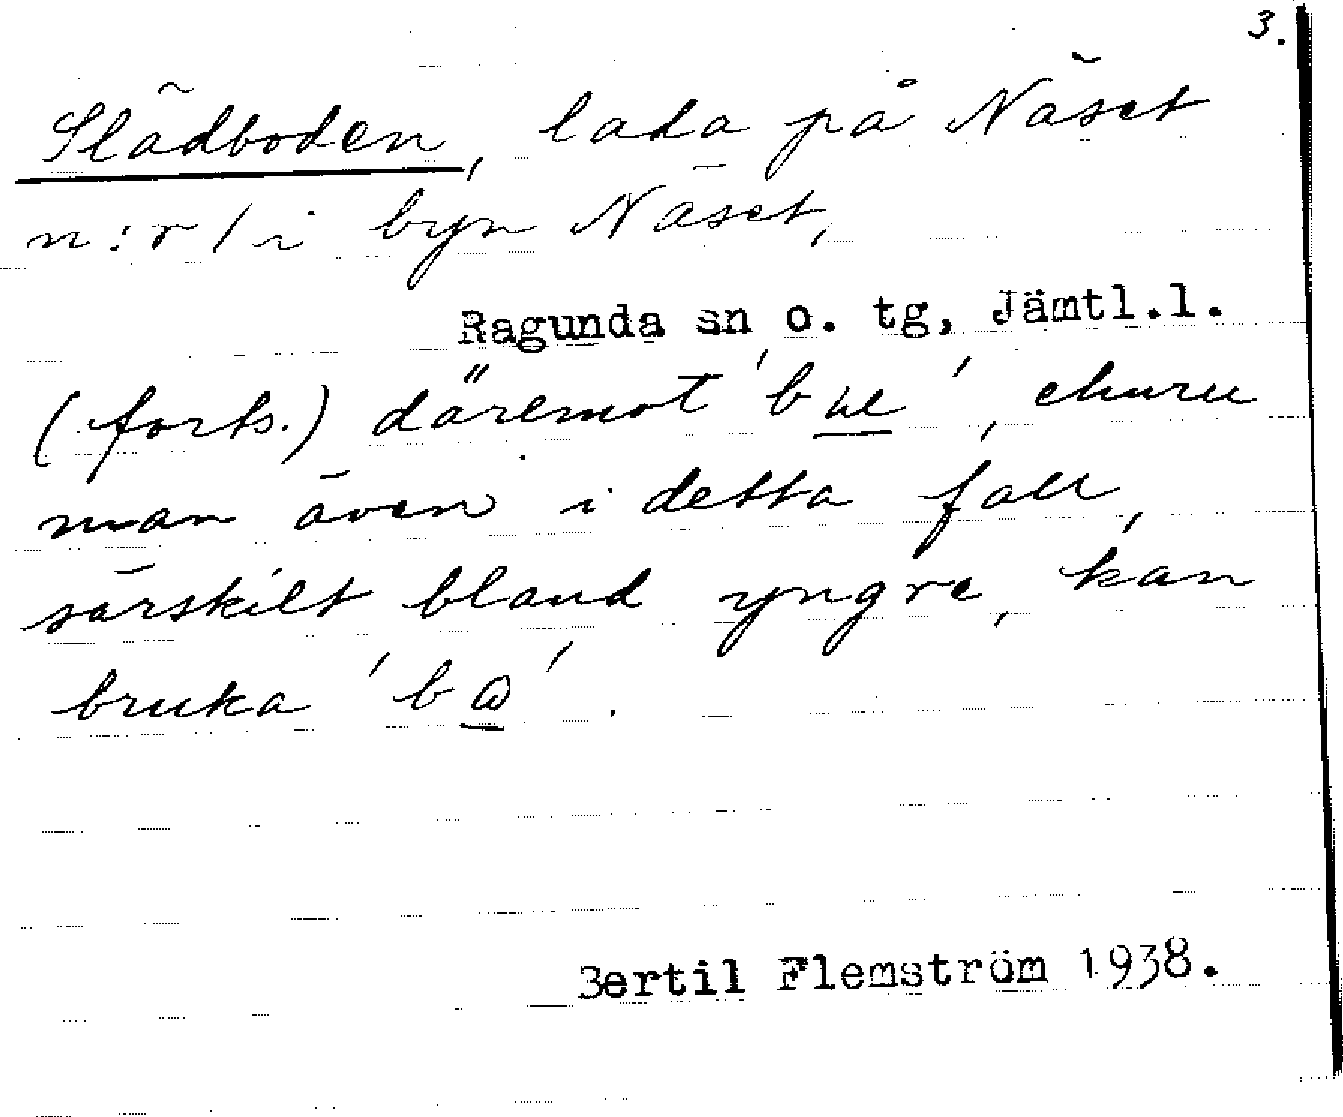 3.
Slädboden, lada på Näset
n:r 1 i byn Näset,
Ragunda sn o. tg, Jämtl.l.
(forts.) däremot 'bue', churu
man även i detta fall,
särskilt bland yngre, kan
bruka 'bɷ'.
Bertil Flemström 1938.